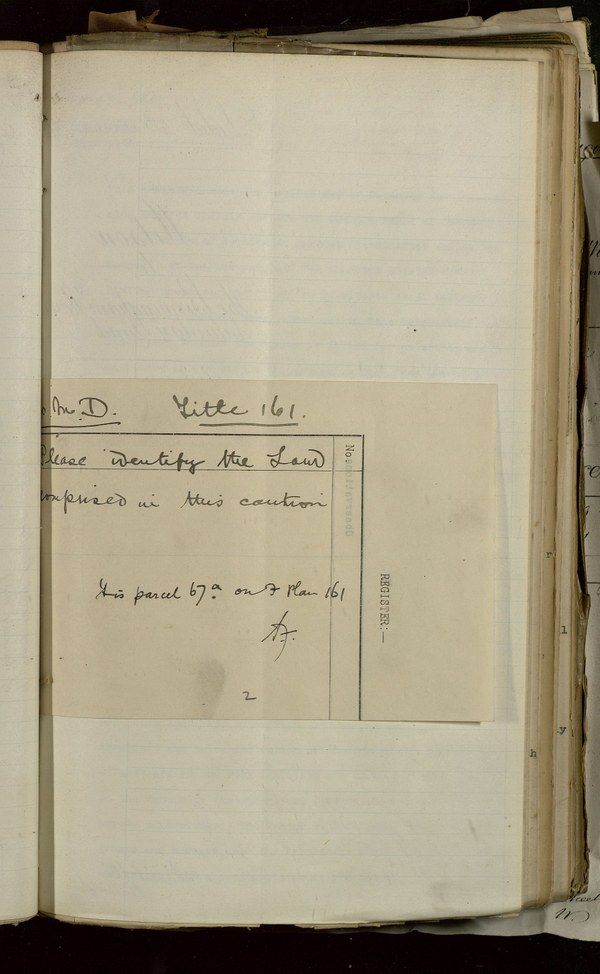 M. D. Title 161.
Please identify the Land
comprised in this caution
It is parcel 67a on F Plan 161
2
REGISTER:—
No.